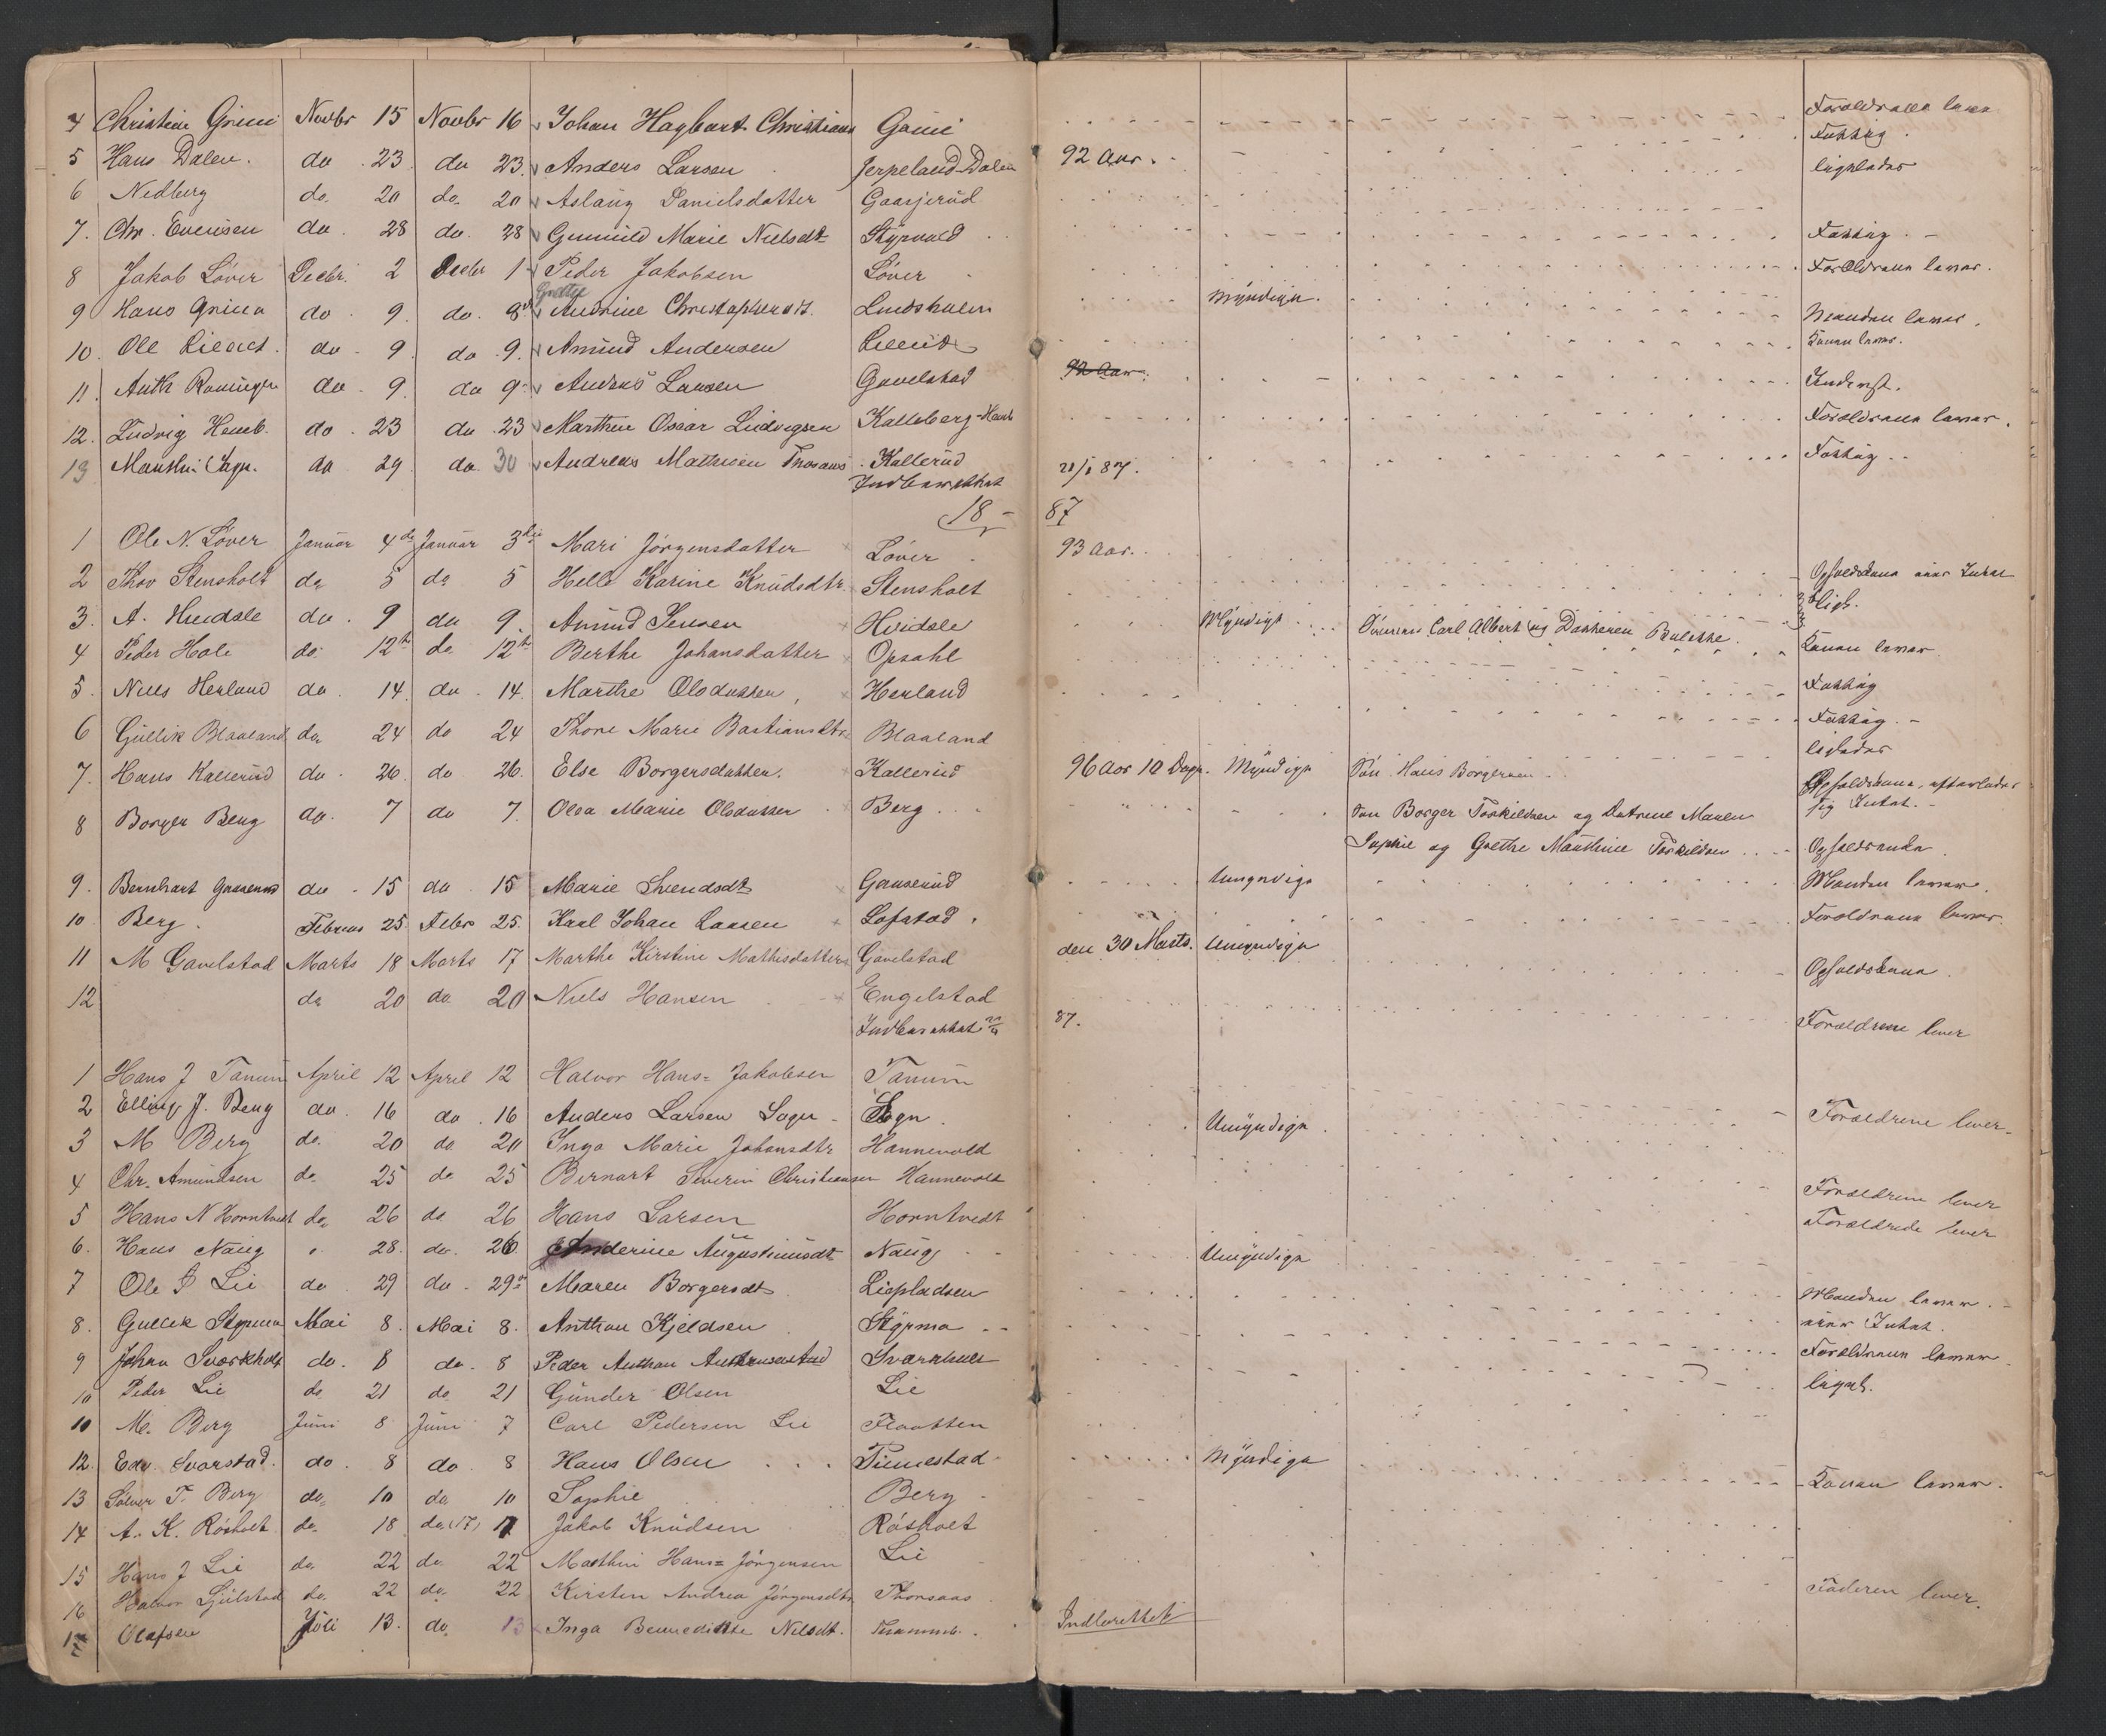 4 Christian Grini Novbr 15 Novbr 16 Johan Hagbart Christians Grini Forældrene lever
Fattig.
5 Hans Dalen. do 23 do 23. Anders Larsen Jerpeland-Dalen 92 Aar. ligeledes
6 Nedberg do. 20 do. 20 Aslaug Danielsdatter Gaasjerud
7. Chr. Evensen do. 28 do. 28 Gunnild Marie Nielsdt Styrvold Fattig. -
8 Jakob Løver Decbr. 2 Decbr 1 Peder Jakobsen Løver Forældrene lever.
Grethe
9 Hans Grinen do. 9. do. 8 Andrine Christophersdt. Lindsholm Myndige. Manden lever.
10. Ole do. 9. do. 9. Amund Andersen Konen lever.
11. Anth Ramingen do. 9. do 9. Andreas Larsen Gavelstad 92 Aar. Underst.
12. Ludvig Hemb. do. 23 do. 23 Marthin Oscar Ludvigsen Kalleberg-Hemb Forældrene lever.
13 Mauthin Sagn. do 29. do. 30 Andreas Mathisen Thorsaas Kallerud 21/1 87. Fattig. -
Indberettet
18 - 87
1 Ole N. Løver Januar 4de Januar 3die Mari Jørgensdatter Løver 93 Aar.
2 Thov Stensholt do 5 do 5 Helle Karine Knudsdtr. Stensholt Opholdskone uden Intet
3. A. Hvidsle do. 9 do 9. Amund Jensen Hvidsle Myndige Sønnen Carl Albert og Datteren Bulette. lige.
4 Peder Hole do. 12te do 12te Berthe Johansdatter Opsahl Konen lever.
5. Niels Herland do. 14. do. 14. Marthe Olsdatter, Herland Fattig
6 Gullik Blaaland do. 24 do 24 Thore Marie Bastiansdtr Blaaland Fattig. -
ligeledes
7. Hans Kallerud do. 26. do. 26. Else Borgersdatter. Kallerud 96 Aar 10 Dage. Myndige Søn Hans Borgersen Opholdskone, efterlader
sig Intet. -
8 Borger Berg do. 7 do 7. Olea Marie Olsdatter Berg Søn Borger Torkildsen og Døtrene Maren
Sophie og Grethe Mauthine Torkildsen Opholdsenke
9. Bernhart Gaaserud do. 15 do. 15 Marie Svendsdt Gaaserud Umyndige Manden lever.
10 Berg. Februar 25. Febr. 25. Karl Johan Larsen Lofstad. Forældrene lever.
11 M Gavelstad Marts 18 Marts 17 Marthe Kirstine Mathisdatter Gavelstad den 30 Marts. Umyndige Opholdskone.
12 do 20 do 20 Niels Hansen Engelstad
Indberettet 87. Forældrene lever
1 Hans J Tanum April 12 April 12 Halvor Hans= Jakobsen Tanum
2 Elling J. Berg do. 16 do. 16 Anders Larsen Sogn - Sogn. Umyndige. Forældrene lever.
3 M Berg do. 20 do. 20 Inga Marie Johansdtr Hannevold
4 Chr. Amundsen do. 25 do. 25 Bernart Severin Christiansen Hannevold Forældrene lever
5 Hans N Horntvedt do. 26 do 26 Hans Larsen Horntvedt Forældrene lever
6. Hans Naug " 28. do. 26 Anderine Augustinusdt Naug Umyndige
7 Ole P Lie do 29 do. 29de Maren Borgersdt Liepladsen Manden lever. -
8. Gullik Styrmo Mai 8. Mai 8. Anthon Kjeldsen Styrmo eier Intet.
9 Johan Svarkholt do. 8 do. 8 Peder Anthon Forældrene lever.
10 Peder Lie do 21 do 21 Gunder Olsen Lie ligel.
10 M. Berg Juni 8 Juni 7 Carl Pedersen Lie Flaatten
12. Edv. Svarstad. do. 8 do. 8 Hans Olsen Tinnestad Myndige Konen lever.
13 Sølver T. Berg do. 10 do 10 Sophie Berg
14 A. K. Røsholt do. 18 do (17) 17 Jakob Knudsen Røsholt
15 Hans J Lie do. 22 do. 22 Mathin Hans= Jørgensen Lie
16 Halvor Gjulstad do. 22 do. 22 Kirsten Andrea Jørgensdtr Thorsaas Faderen lever.
17 Olafsen Juli 13. do. 13 Inga Bennedikte Nilsdt. Indberettet